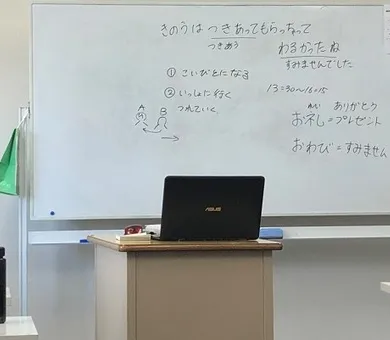 きのうは つきあってもらっちゃって
つきあう
わるかったね
すみませんでした
① こいびとになる
② いっしょに行く
つれていく
A B
13:30~16:15
ありがとう
お礼=プレゼント
おわび=すみません
ASUS